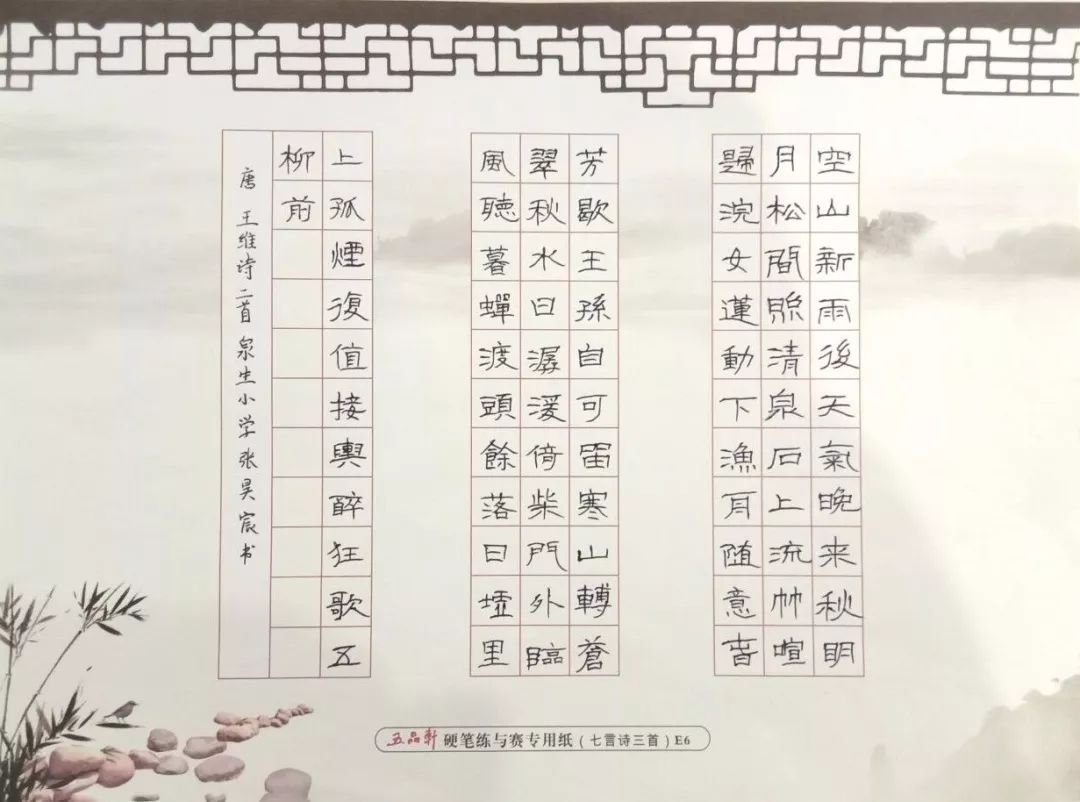 空山新雨後天氣晚来秋明
月松間照清泉石上流竹喧
歸浣女蓮動下漁舟随意春
芳歇王孫自可留寒山轉蒼
翠秋水日潺湲倚柴門外臨
風聽暮蟬渡頭餘落日墟里
上孤煙復值接輿醉狂歌五
柳前
唐 王维诗二首 泉生小学张昊宸书
五品軒 硬笔练与赛专用纸（七言诗三首）E6